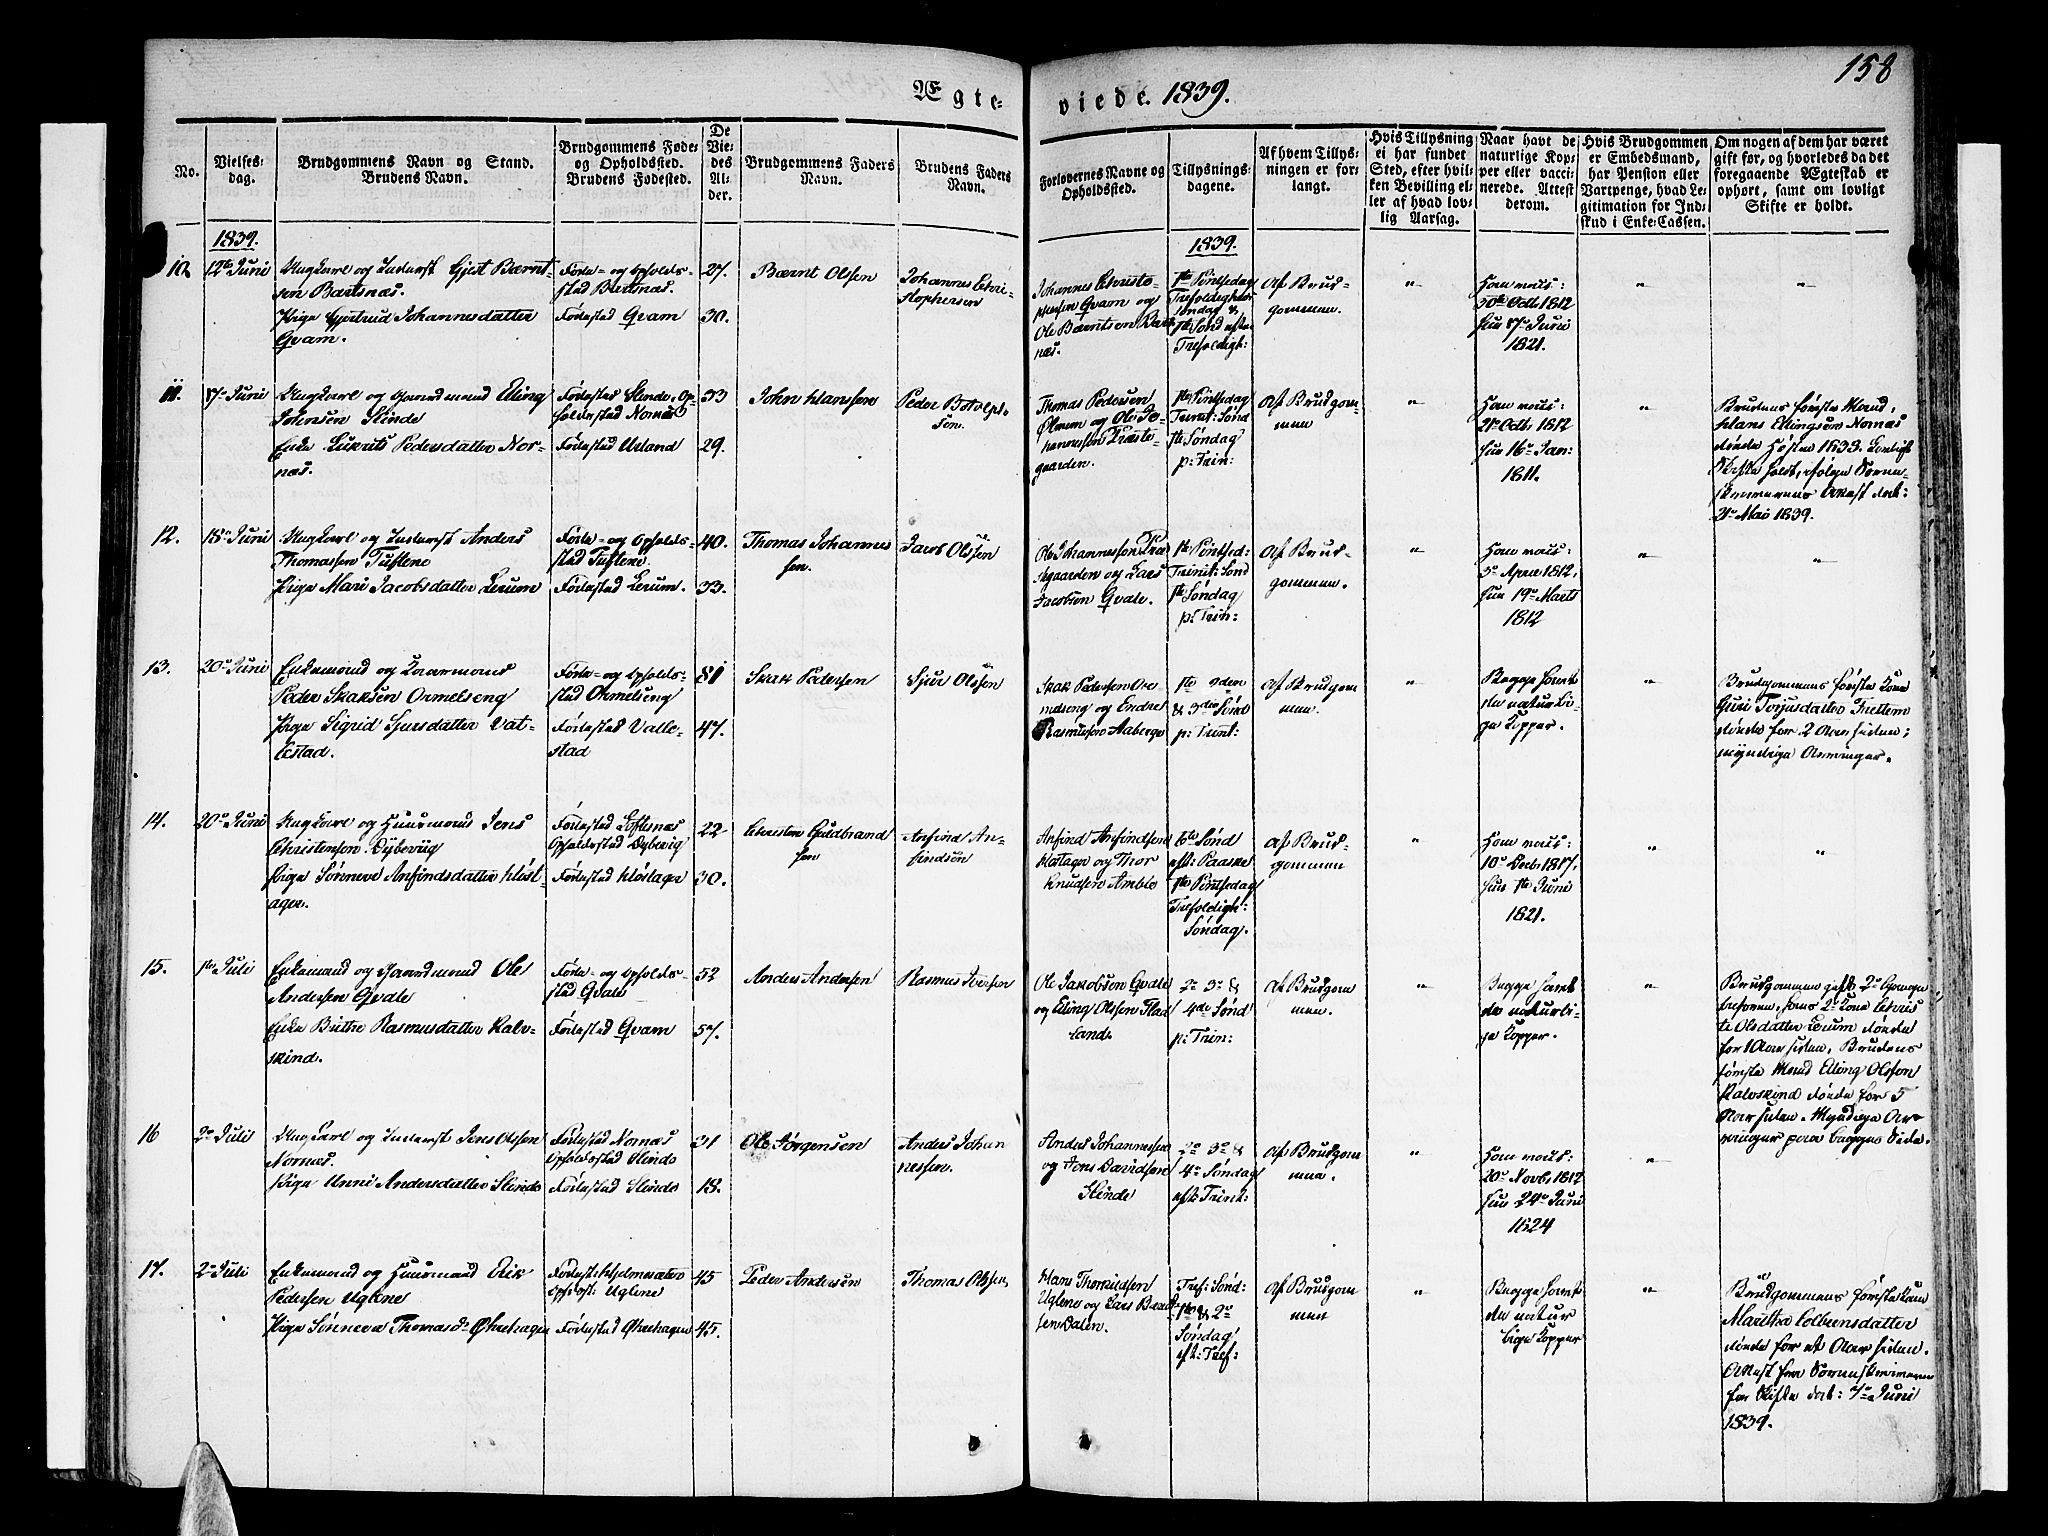 158
Ægte-
viede. 1839.
No.
Vielses-
dag.
Brudgommens Navn og Stand.
Brudens Navn.
Brudgommens Føde-
og Opholdssted.
Brudens Fødested.
De
Vie-
des
Al-
der.
Brudgommens Faders
Navn.
Brudens Faders
Navn.
Forlovernes Navne og
Opholdssted.
Tillysnings-
dagene.
Af hvem Tillys-
ningen er for-
langt.
Hvis Tillysning
ei har fundet
Sted, efter hvil-
ken Bevilling el-
ler af hvad lov-
lig Aarsag.
Naar havt de
naturlige Kop-
per eller vacci-
nerede. Attest
derom.
Hvis Brudgommen
er Embedsmand,
har Pension eller
Vartpenge, hvad Le-
gitimation for Ind-
skud i Enke-Cassen.
Om nogen af dem har været
gift før, og hvorledes da det
foregaaende Ægteskab er
ophørt, samt om lovligt
Skifte er holdt.
1839.
1839.
10.
12te Juni
Ungkarl og Inderst Gjest Bærnt-
sen Bærtsnæs.
Pige Gjertrud Johannesdatter
Qvam.
Føde- og Opholds-
sted Bærtsnæs.
Fødested Qvam
27.
30.
Bærnt Olssen
Johannes Chri-
stophersen
Johannes Christo-
phersen Qvam og
Ole Bærntsen
næs.
1ste Pintsedag
Trefoldigheds
søndag &
1ste Sønd efter
Trefoldigh:
Af Brud-
gommen.
"
Ham vacc:
30te Octb 1812
hun 17de Juni
1821.
"
"
11.
17de Juni
Ungkarl og Gaardmand Elling
Johnsen Slinde
Enke Pedersdatter Nor-
næs.
Fødested Slinde, Op-
holdssted Nornæs
Fødested Urland
33
29.
John Hanssen
Peder Botolph-
sen.
Thomas Pedersen
Ølmem og Ole Jo-
hannessen Præste-
gaarden.
1ste Pintsedag
Trinit: Sønd
1ste Søndag
p: Trin:
Af Brudgom-
men
"
Ham vacc:
21de Octb. 1812
hun 16de Jan:
1811.
"
Brudens første Mand,
Hans Ellingsen Nornæs
døde Høsten 1833. Lovligt
Skifte holdt, ifølge Soren-
skriverens Attest dat:
21de Mai 1839.
12.
18de Juni
Ungkarl og Inderst Anders
Thomassen Tuftene
Pige Mari Jacobsdatter Lerum
Føde- og Opholds-
sted Tuftene.
Fødested Lerum.
40.
33.
Thomas Johannes
sen.
Jacob Olssen
Ole Johannessen Præ
stegaarden og Lars
Jacobsen Qvale.
1ste Pintsed-
Trinit: Sønd
1ste Søndag
p: Trin:
Af Brud-
gommen.
"
Ham vacc:
3de April 1812,
hun 19de Marts
1812
"
"
13.
20de Juni
Enkemand og Kaarmand
Peder Skaksen Ormelseng
Pige Sigrid Sjursdatter Val-
lestad.
Føde- og Opholds-
sted Ormelseng
Fødested Valle-
stad
81
47.
Skak Pedersen
Sjur Olssen
Skak Pedersen Orme
lseng og Endre
Rasmussen Aaberge
1ste 2den
& 3die Sønd
p: Trinit:
Af Brudgom
men.
"
Begge havt
de naturli-
ge Kopper.
"
Brudgommens første Kone
Guri Torjusdatter Frettem
døde for 2 Aar siden;
myndige Arvinger.
14.
20de Juni
Ungkarl og Huusmand Jens
Christensen Dybevig
Pige Sønneve Anfindsdatter Kløst-
ager.
Fødested Loftesnæs
Opholdssted Dybevig
Fødested Kløstager
22
30.
Christen Guldbrand
sen
Anfind An-
findsen
Anfind Anfindsen
Kløstager og Thor
Knudsen Amble
6te Sønd
eft: Paaske
1ste Pintsedag
Trefoldigh:
Søndag.
Af Brud-
gommen
"
Ham vacc:
10de Decb. 1817,
hun 1ste Juni
1821.
"
"
15.
1ste Juli
Enkemand og Gaardmand Ole
Andersen Qvale
Enke Brithe Rasmusdatter Kalv-
skind.
Føde- og Opholds-
sted Qvale
Fødested Qvam
52
57.
Anders Andersen
Rasmus Iversen
Ole Jakobsen Qvale
og Elling Olssen Flad
land.
2de 3de &
4de Sønd
p: Trin:
Af Brudgom
men.
"
Begge havt
de naturli-
ge Kopper.
"
Brudgommen gift 2de Gange
tilforn, hans 2de Kone Chris
ti Olsdatter Lerum døde
for 1 Aar siden, Brudens
første Mand Elling Olssen
Kalvskind døde for 5
Aar siden. Myndige Ar-
vinger paa begges Side.
16
2de Juli
Ungkarl og Inderst Jens Olssen
Nornæs.
Pige Unni Andersdatter Slinde
Fødested Nornæs
Opholdssted Slinde
Fødested Slinde
31
18.
Ole Jørgensen
Anders Johan
nessen.
Anders Johannessen
og Jens Davidsen
Slinde
2de 3de &
4de Søndag
eft: Trinit:
Af Brudgom
men.
"
Ham vacc:
20de Novb. 1812
hun 24de Juni
1824
"
17.
2de Juli
Enkemand og Huusmand Erik
Pedersen Uglene
Pige Sønneva Thomasd: Øhrehagen
Fødest: Hjelmesæter
Opst: Uglene
Fødested Øhrehagen
45
45.
Peder Andersen
Thomas Olssen
Hans
Uglene og Lars
sen Dalen.
Tref: Sønd:
1ste & 2de
Søndag
eft: Tref:
Af Brudgom
men
"
Begge havt
de natur
lige Kopper
"
Brudgommens første Kone
Maritha Colbensdatter
døde for et Aar siden.
Attest fra Sorenskriveren
for Skifte dat: 7de Juni
1839.